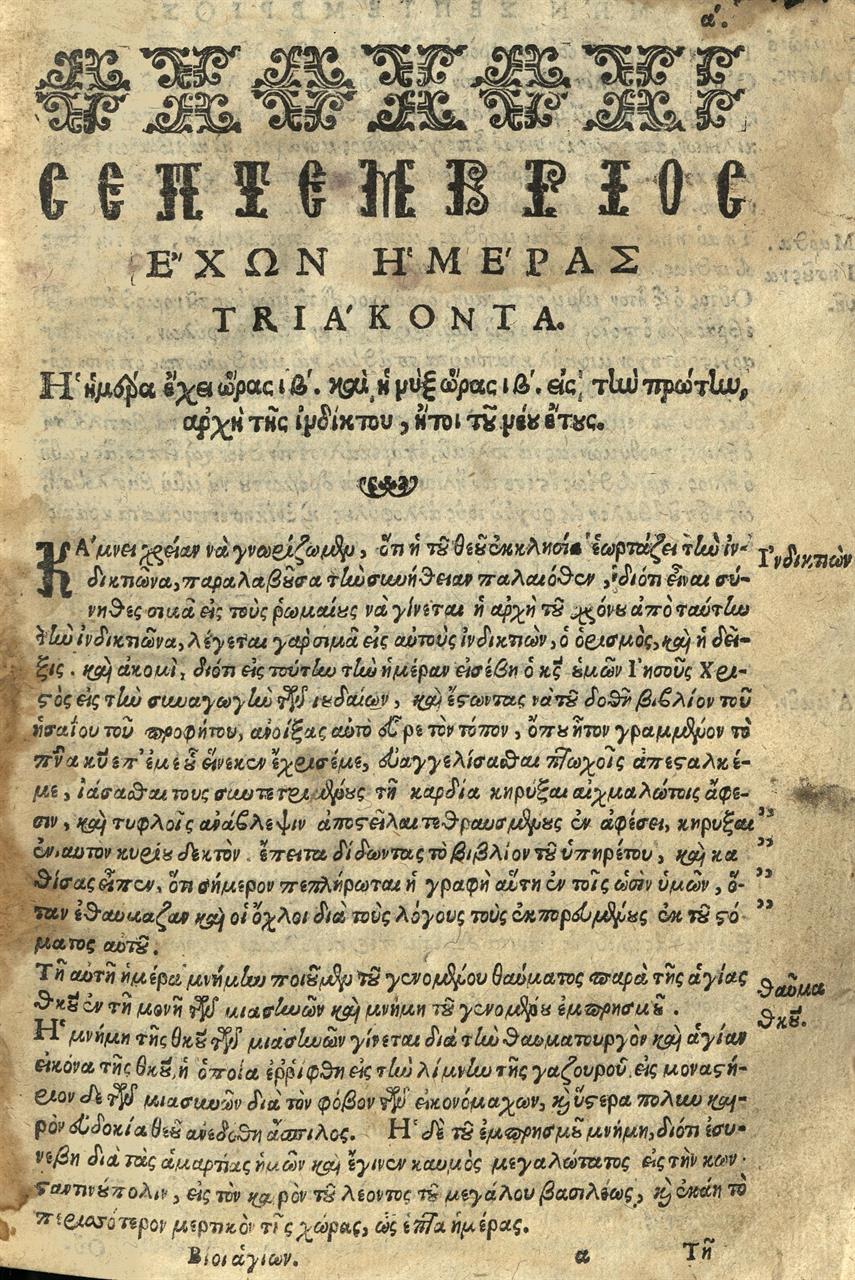 α΄.
ΣΕΠΤΕΜΒΡΙΟΣ
Ἔ΄ΧΩΝ Ἡ῾ΜΕ΄ΡΑΣ
ΤRΙΑ΄ΚΟΝΤΑ.
Ἡ῾ ἡμέρα ἔχει ὥρας ιβ΄. καὶ ἡ νὺξ ὥρας ιβ΄. εἰς τὴν πρώτην,
ἀρχὴ τῆς ἰνδίκτου, ἤτοι τοῦ νέου ἔτους.
ΚΑ΄μνει χρείαν νὰ γνωρίζωμεν, ὅτι ἡ τοῦ θεοῦ ἐκκλησία ἑορτάζει τὴν ἰν-
δικτιῶνα, παραλαβοῦσα τὴν συνήθειαν παλαιόθεν, διότι εἶναι σύ-
νηθες σιμὰ εἰς τοὺς ῥωμαίους νὰ γίνεται ἡ ἀρχὴ τοῦ χρόνου ἀπὸ ταύτην
τὴν ἰνδικτιῶνα, λέγεται γὰρ σιμὰ εἰς αὐτοὺς ἰνδικτιὼν, ὁ ὁρισμὸς, καὶ ἡ δεῖ-
ξις. καὶ ἀκομὶ, διότι εἰς τούτην τὴν ἡμέραν εἰσέβη ὁ κς ἡμῶν Ἰησοῦς Χρι-
στὸς εἰς τὴν συναγωγὴν τῶν ἰουδαίων, καὶ ἔστωντας νὰ τοῦ δοθῇ βιβλίον τοῦ
ἡσαΐου τοῦ προφήτου, ἀνοίξας αὐτὸ εὗρε τὸν τόπον, ὅπου ἦτον γραμμένον τὸ
πνα κυ ἐπ' ἐμὲ οὗ εἵνεκεν ἔχρισέμε, εὐαγγελίσασθαι πτωχοῖς ἀπέσταλκέ-
με, ἰάσασθαι τους συντετριμμένους τῇ καρδία κηρύξαι αἰχμαλώτοις ἄφε-
σιν, καὶ τυφλοῖς ἀνάβλεψιν ἀποστεῖλαι τεθραυσμένους ἐν ἀφέσει, κηρυξαι
ἐνιαυτον κυρίου δεκτόν. ἔπειτα δίδωντας τὸ βιβλίον τοῦ ὑπηρέτου, καὶ κα
θίσας εἶπεν, ὅτι σήμερον πεπλήρωται ἡ γραφὴ αὕτη ἐν τοῖς ὠσὶν ὑμῶν, ὅ-
ταν ἐθαύμαζαν καὶ οἱ ὄχλοι διὰ τοὺς λόγους τοὺς ἐκπορευμένους ἐκ τοῦ στό
ματος αὐτοῦ.
Τῇ αὐτῇ ἡμέρᾳ μνήμην ποιοῦμεν τοῦ γενομένου θαύματος παρὰ τῆς ἁγίας
θκου ἐν τῇ μονῇ τῶν μιασηνῶν καὶ μνήμη τοῦ γενομένου ἐμπρησμοῦ.
Ἡ῾ μνήμη τῆς θκου τῶν μιασηνῶν γίνεται διὰ τὴν θαυματουργὸν καὶ ἁγίαν
εἰκόνα τῆς θκου, ἡ ὁποία ἐῤῥίφθη εἰς τὴν λίμνην τῆς γαζουροῦ, εἰς μοναστή-
ριον δὲ τῶν μιασηνῶν διὰ τὸν φόβον τῶν εἰκονόμαχων, κ ὕστερα πολὺν και-
ρὸν εὐδοκία θεοῦ ἀνεδώθη ἄσπιλος. Ἡ῾ δὲ τοῦ ἐμπρησμοῦ μνήμη, διότι ἐσυ-
νέβη διὰ τὰς ἁμαρτίας ἡμῶν καὶ ἔγινεν καυμὸς μεγαλώτατος εἰς τὴν κων-
σταντινύπολιν, εἰς τὸν καιρὸν τοῦ λέοντος τοῦ μεγάλου βασιλέως, κ ἐκάη τὸ
περισσότερον μερτικὸν τῆς χώρας, ὡς ἑπτὰ ἡμέρας.
Ἰνδικτιὼν
θαῦμα
θκου.
Βιοι ἁγίων.
α
Τῇ